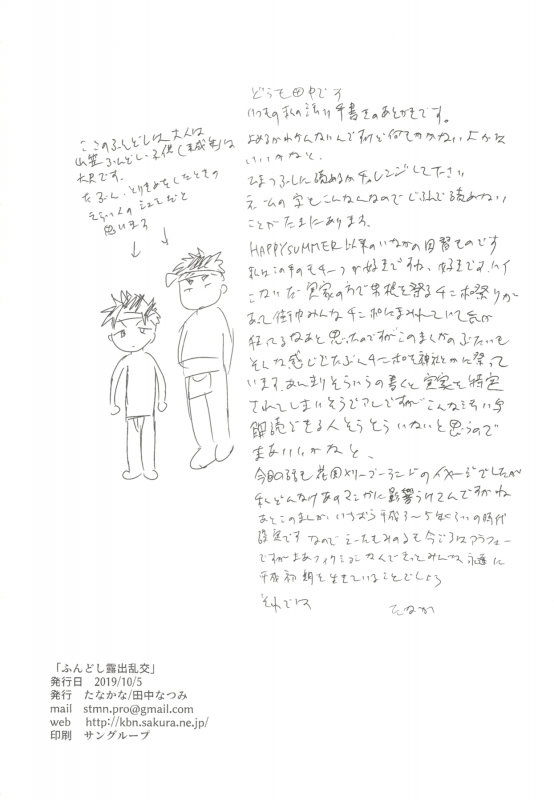 ここのふんどしは大人は
ふんどし・子供(未成年)は
です。
思います
どうも田中です
いつもの私の汚い手書きのあとがきです。
よめるかわかんないんですけど何でかかない
いいかなと、
ひまつぶしに読めるかチャレンジして下さい
ことがたまにあります。
HAPPYSUMMER以来のいなかの因習ものです
私はこの手のモチーフが好きですね、好きです。ハイ
こないだ実家の方で男根を祭るチンポ祭りが
あって街中みんなチンポにまみれていて
狂ってるなあと思ったのですがこのまんがのぶたいも
そんな感じでたぶんチンポを神社とかに祭って
います。あんまりそういうの書くと実家を特定
されてしまいそうでアレですがこんな汚い字
解読できる人そうそういないと思うので
まあいいかなと、
今回の話も花園メリーゴーランドのイメージでしたが
私どんだけあのマンガに影響うけてんですかね
あとこのまんが、いちおう平成3〜5年くらいの時代
設定です なので も今ごろはアラフォー
ですがまあフィクションなんできっとみんな永遠に
平成初期を生きていることでしょう
それでは
たなか
「ふんどし露出乱交」
発行日 2019/10/5
発行 たなかな/田中なつみ
mail stmn.pro@gmail.com
web http://kbn.sakura.ne.jp/
印刷 サングループ